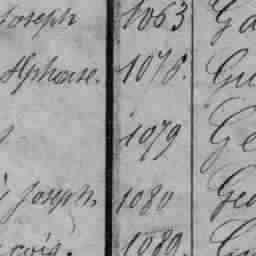 Joseph 1063 Ga
Alphonse. 1078. Gu
1079 Ge
Joseph, 1080 Geo
çois. 1089.